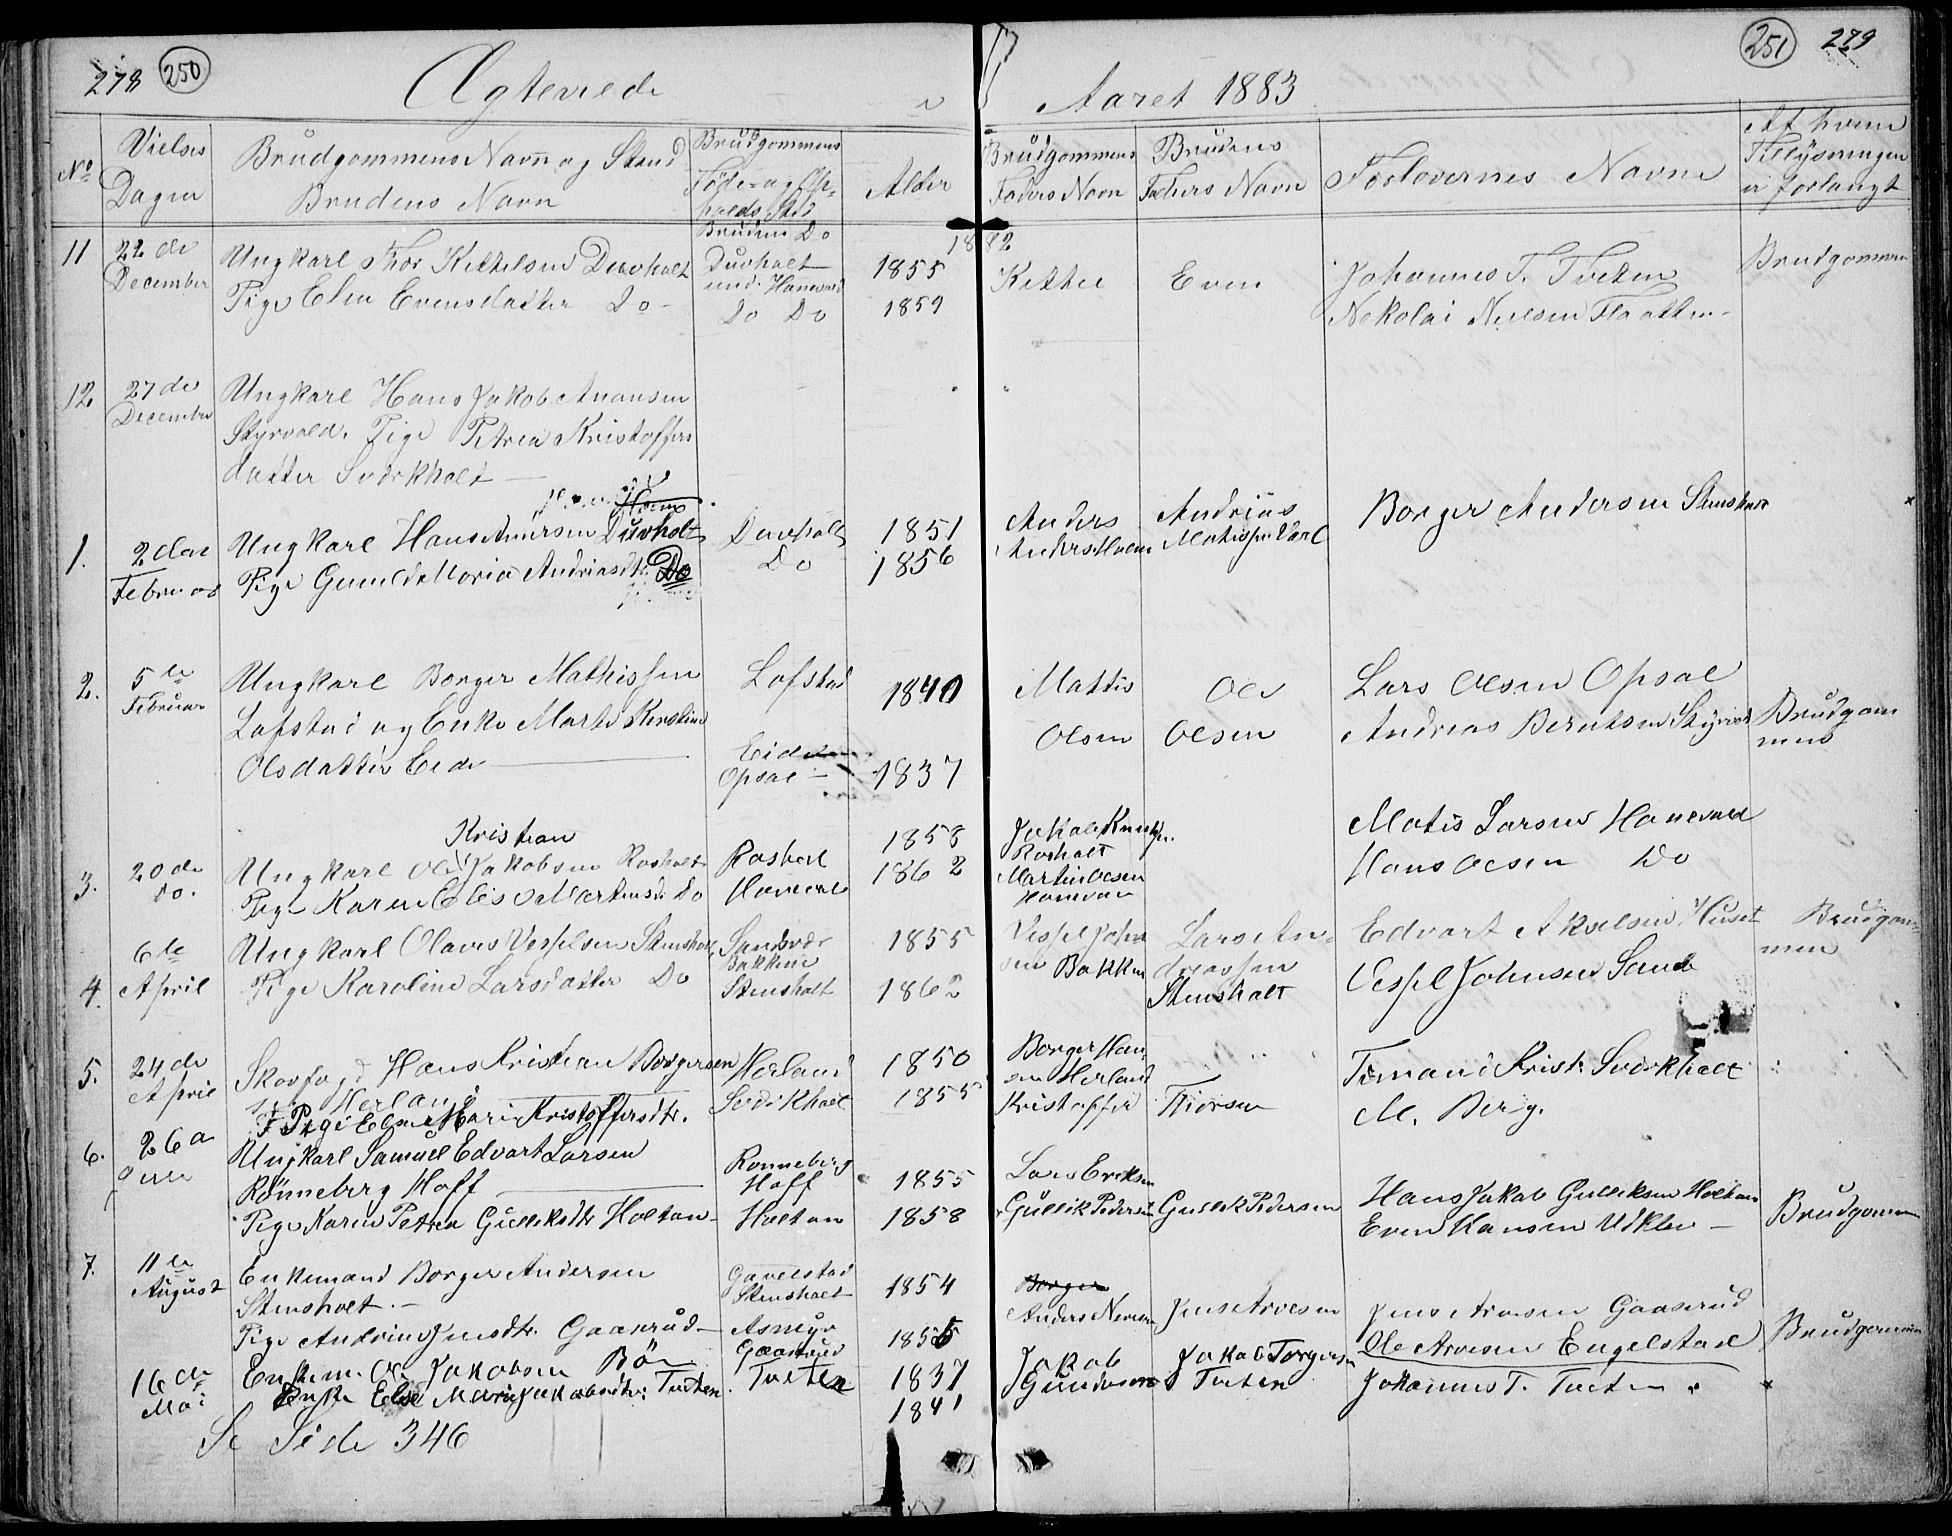 278 250 Ægteviede i Aaret 1883 251 279
No Vielses Dagen
Brudgommens Navn og Stand
Brudens Navn
Brudgommens Føde og Opholds Sted
Brudens Do
Alder
Brudgommens Faders Navn
Brudens Faders Navn
Forlovernes Navne
Af hvem Tillysningen er forlangt
1882
11 22de December
Ungkarl Thor Kittelsen Duvholt
Pige Elen Evensdatter Do
Duvholt
und. Hanevold
Do Do
1855
1859
Kittel
Even
Johannes T. Tveten
Nekolai Neelsen Flaatten
Brudgommen
12 27de December
Ungkarl Hans Jakob Anonsen
Styrvold. Pige Petrea Kristoffers
datter Svorkholt
1. 2den Februar
Holm
Ungkarl Hans Andersen Duvholt
Pige Gunilde Maria Andriasdtr. Do
Duvholt
Do
1851
1856
Anders
Anders Holm
Andrias
Borger Andersen Stensholt
2. 5te Februar
Ungkarl Borger Mathissen
Lofstad og Enke Marte Kirstine
Olsdatter Eide
Lofstad
Eide
Opsal
1840
1837
Mattis
Olsen
Ole
Olsen
Lars Olsen Opsal
Andreas Berntsen Styrvold
Brudgommens
3. 20de Do.
Kristian
Ungkarl Ole Jakobsen Rosholt
Pige Karen Elise Martinsdt. Do
Rosholt
Hanevold
1858
1862
Jakob
Rosholt
Martin Olsen
Hanevold
Matis Larsen Hanevold
Hans Olsen Do
4. 6te April
Ungkarl Olaves Vesselsen Stensholt
Pige Karoline Larsdatter Do
Sandsvær
Bakkene
Stensholt
1855
1862
Vessel Johnsen Bakken
Lars Andreassen
Stensholt
Edvart Akselsen Huset
Vessel Johnsen Sande
Brudgommen
5. 24de April
Skovfogd Hans Kristian Borgersen
Herland
Pige Elen Mari Kristoffersdtr.
Herland
Svorkholt
1850
1855
Borger Hansen Herland
Kristoffer
Thorsen
Timan Krist. Svorkholt
M. Berg.
6. 26a
Ungkarl Samuel Edvart Larsen
Rønneberg Hoff
Pige Karen Petrea Gulliksdtr Holtan
Ronneberg
Hoff
Holtan
1855
1858
Lars Eriksen
Gullik Pedersen
Gullik Pedersen
Hans Jakob Gulliksen Holtan
Even Hansen Uklev
Brudgommen
7. 11te August
Enkemand Borger Andersen
Stensholt.
Pige Andrine Jensdtr. Gaasrud
Gavelstad
Stensholt
Asmyr
Gaasrud
1854
1855
Borger
Anders
Jens Arvesen
Jens Arvesen Gaaserud
Ole Arvesen Engelstad
Brudgommen
16de Mai
Enkem. Ole Jakobsen Bøe
Enke Else Maria Jakobsdtr. Tveten.
Tveten
1837
1841
Jakob
Gundersen
Jakob Torgersen
Tveten
Johannes T. Tveten
Se Side 346